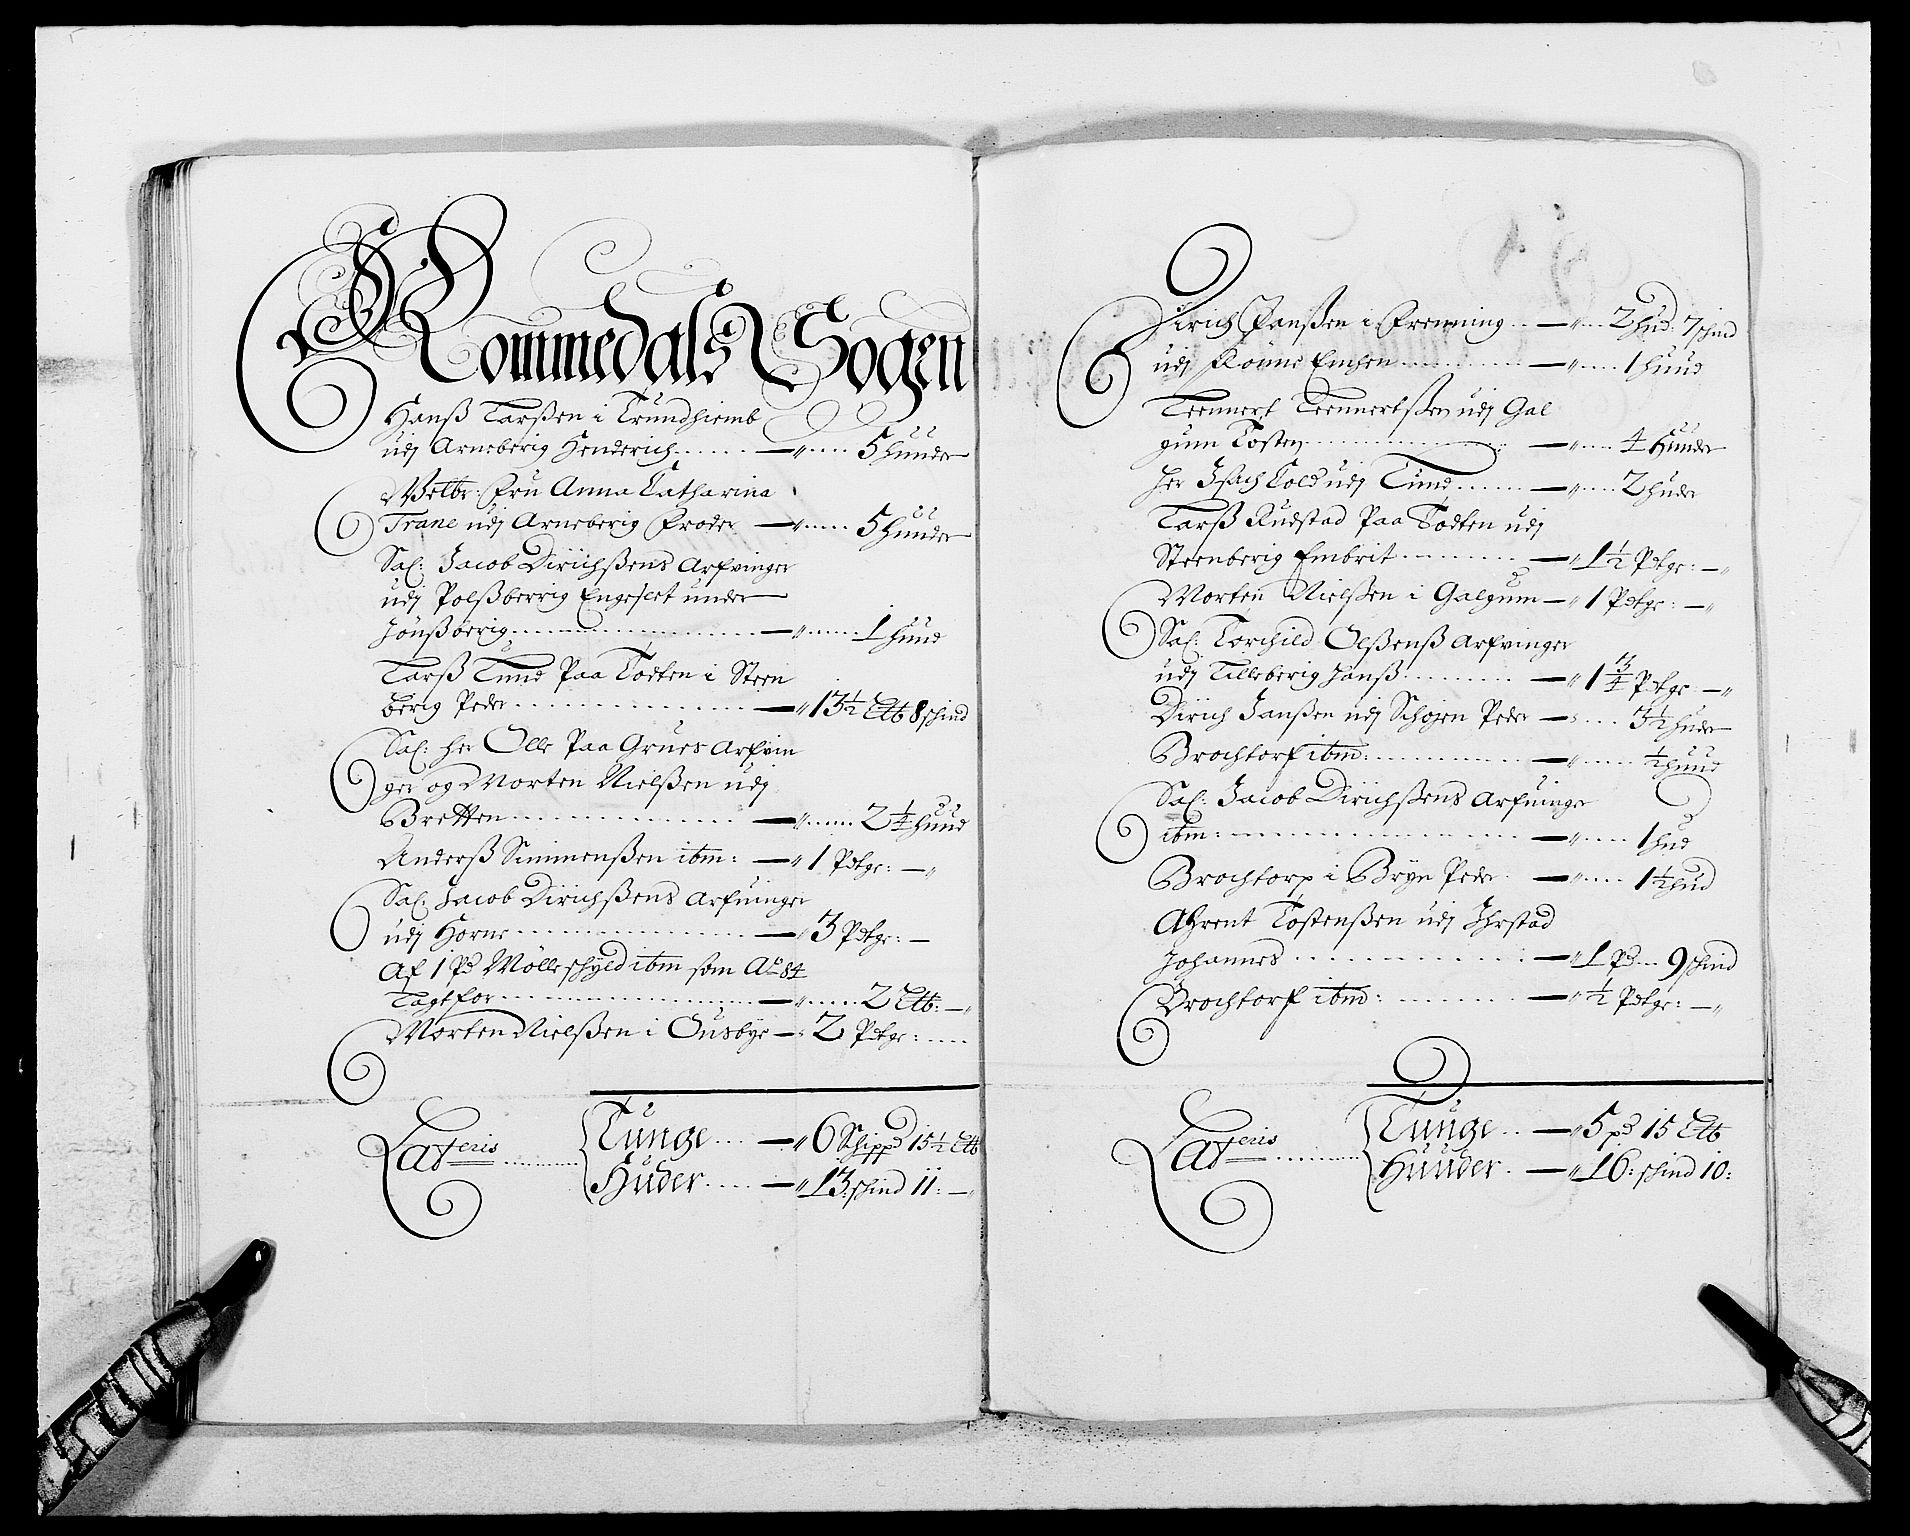 Rommedals Sogen
Hanß Larßen i Trundhiemb
udj Arneberig Henderich ..... — „ ..... 5 huuder
Velbr: Fru Anna Catharina
Trane udj Arneberig Froder — „ ..... 5 huuder
Sal: Jacob Dirichßens Arfvinger
udj Polßberrig Engeslet under
Jönßberig ..... — „ ..... 1 huud
Larß Lund Paa Todten i Steen
berig Peder ..... — „ 13½ Ltb 8 schind
Sal: her Olle Paa Grues Arfvin
ger og Morten Nielßen udj
Bretten ..... — „ ..... 2¼ huud
Anderß Simmenßen ibm: — „ 1 Pdtge: — „
Sal: Jacob Dirichßens Arfuinger
udj Horne ..... — „ 3 Pdtge: —
Af 1 Pd Mølleschyld ibm som Ao 84
Tagt for ..... — „ ..... 2 Ltb: — „
Morten Nielßen i Ousbye — „ 2 Pdtge: .....
Lateris ..... Tunge .... — „ 6 Schippd 15½ Ltb
Huder ..... — „ 13: schind 11: — „
Dirich Janßen i Frenning .. — „ ... 2 hud: 7 schind
udj Röune Emhen ..... — „ .... 1 huud
Leennert Leennertßen udj Gal
gum Tosten ..... — „ .... 4 Huuder
her Isach Cold udj Lund ..... — „ .... 2 huder
Larß Rudstad Paa Todten udj
Steenberig Embrit ..... — „ 1½ Pdtge: — „
Morten Nielßen i Galgum — „ 1 Pdtge: — „
Sal: Torchild Olßenß Arfvinger
udj Lilleberig Hanß ..... — „ 1¾ Pdtge — „
Dirich Janßen udj Schojen Peder — : .... 3½ huder
Brochtorf ibm: ..... — „ ..... ½ huud
Sal: Jacob Dirichßens Arfuinge
ibm: ..... — „ ..... 1 hud
Brochtorp i Bryn Peder — „ .... 1½ hud
Ahrent Tostenßen udj Ihrstad
Johannes ..... — „ 1 Pd ... 9 schind
Brochtorf ibm: ..... — „ ½ Pdtge: — „
Lateris ..... Tunge .. — „ 5 pd 15 Ltb
Huuder . — „ 16: schind 10: